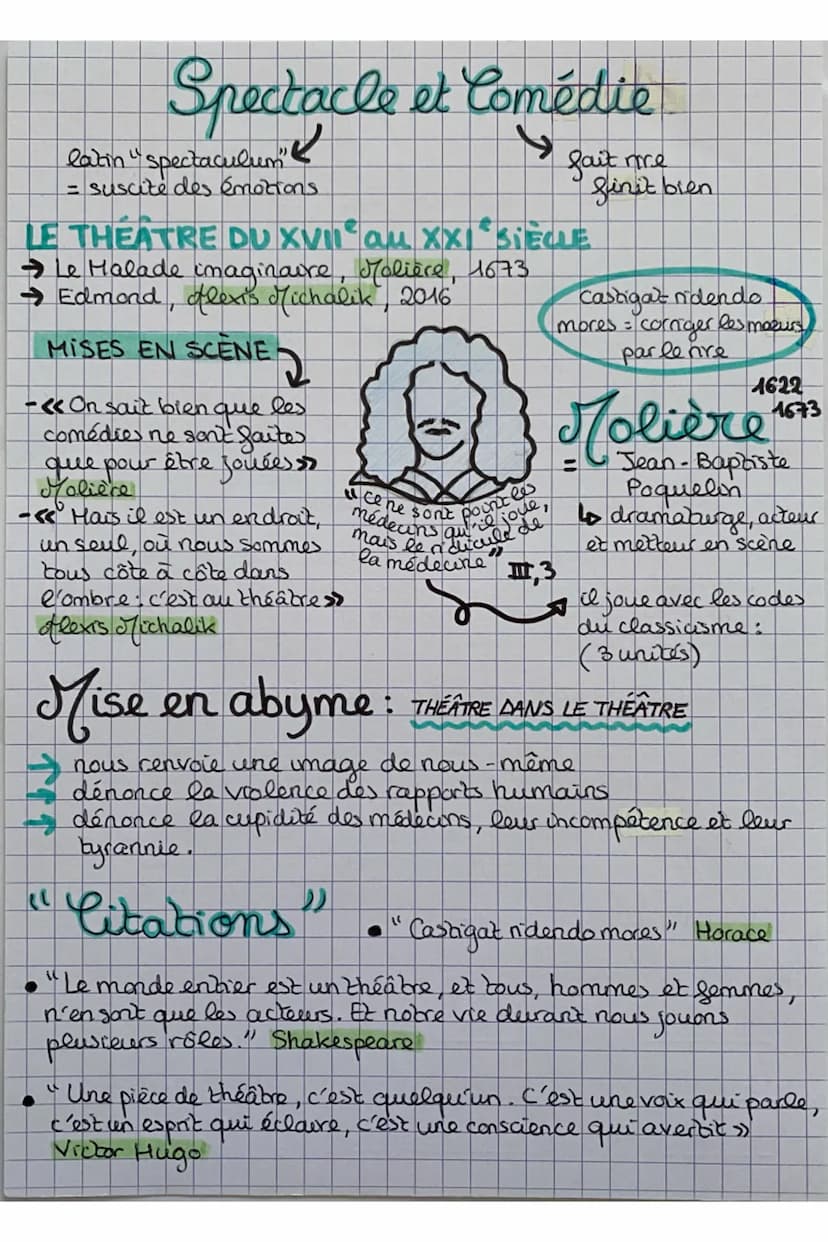 Spectacle et Comédie
latin "spectaculum"
= suscite des émotions
fait rire
finit bien
LE THÉÂTRE DU XVIIe au XXIe SIÈCLE
→ Le Malade imaginaire, Molière, 1673
→ Edmond, Alexis Michalik, 2016
Castigat ridendo
mores = corriger les mœurs
par le rire
MISES EN SCÈNE
- «On sait bien que les
comédies ne sont faites
que pour être jouées»
Molière
- «Mais il est un endroit,
un seul, où nous sommes
tous côte à côte dans
l'ombre : c'est au théâtre»
Alexis Michalik
"ce ne sont point les
médecins qu'il joue,
mais le ridicule de
la médecine"
III, 3
1622
1673
Molière
= Jean-Baptiste
Poquelin
↳ dramaturge, acteur
et metteur en scène
il joue avec les codes
du classicisme :
(3 unités)
Mise en abyme : THÉÂTRE DANS LE THÉÂTRE
→ nous renvoie une image de nous-même
→ dénonce la violence des rapports humains
→ dénonce la cupidité des médecins, leur incompétence et leur
tyrannie.
"Citations"
• "Castigat ridendo mores" Horace
• "Le monde entier est un théâtre, et tous, hommes et femmes,
n'en sont que les acteurs. Et notre vie durant nous jouons
plusieurs rôles." Shakespeare
• "Une pièce de théâtre, c'est quelqu'un. C'est une voix qui parle,
c'est un esprit qui éclaire, c'est une conscience qui avertit»
Victor Hugo